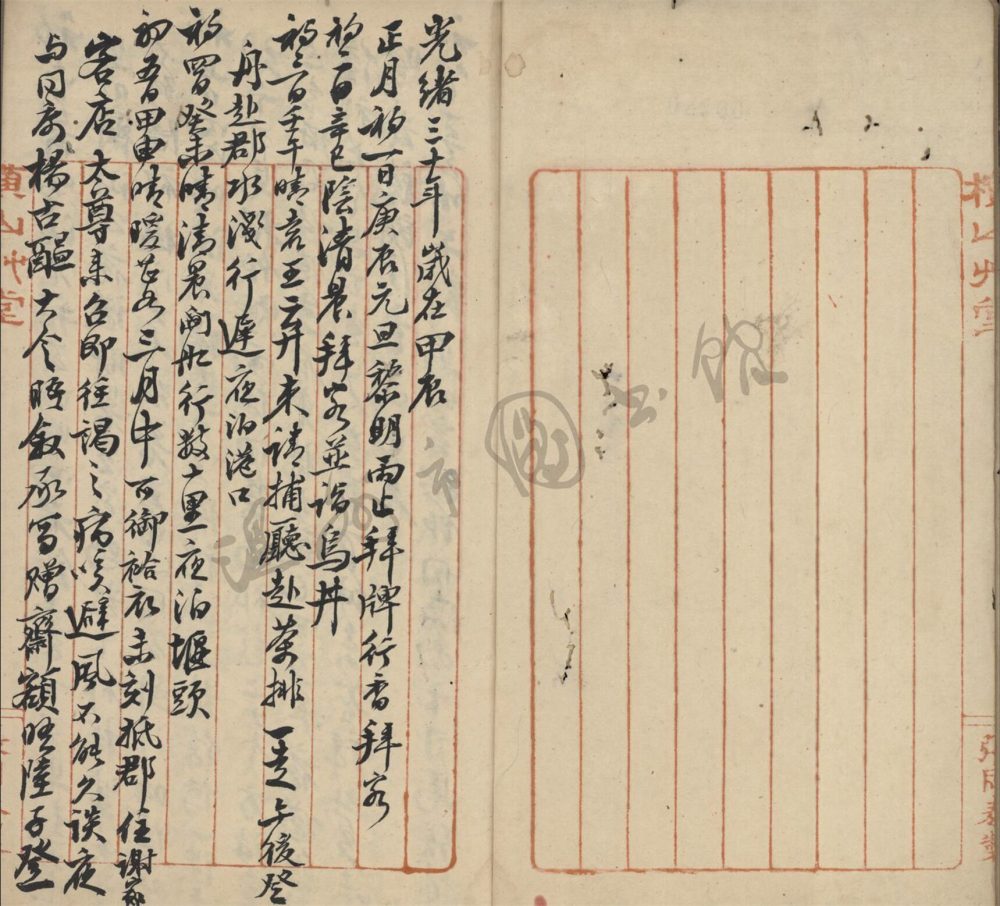 光緒三十年歲在甲辰
正月初一日庚辰元旦黎明雨止拜牌行香拜客
初二日辛巳陰清晨拜客並詣烏井
初三日壬午晴袁王二弁來請捕廳赴茶排一走午後登
舟赴郡水淺行遲夜泊港口
初四日癸未晴清晨開船行數十里夜泊堰頭
初五日甲申晴暖若三月中可御袷衣未刻抵郡住謝家
客店太尊來召即往謁之病咳避風不能久談夜
与同寅楊古醞大令晤叙承寫贈齋額晤陸子登